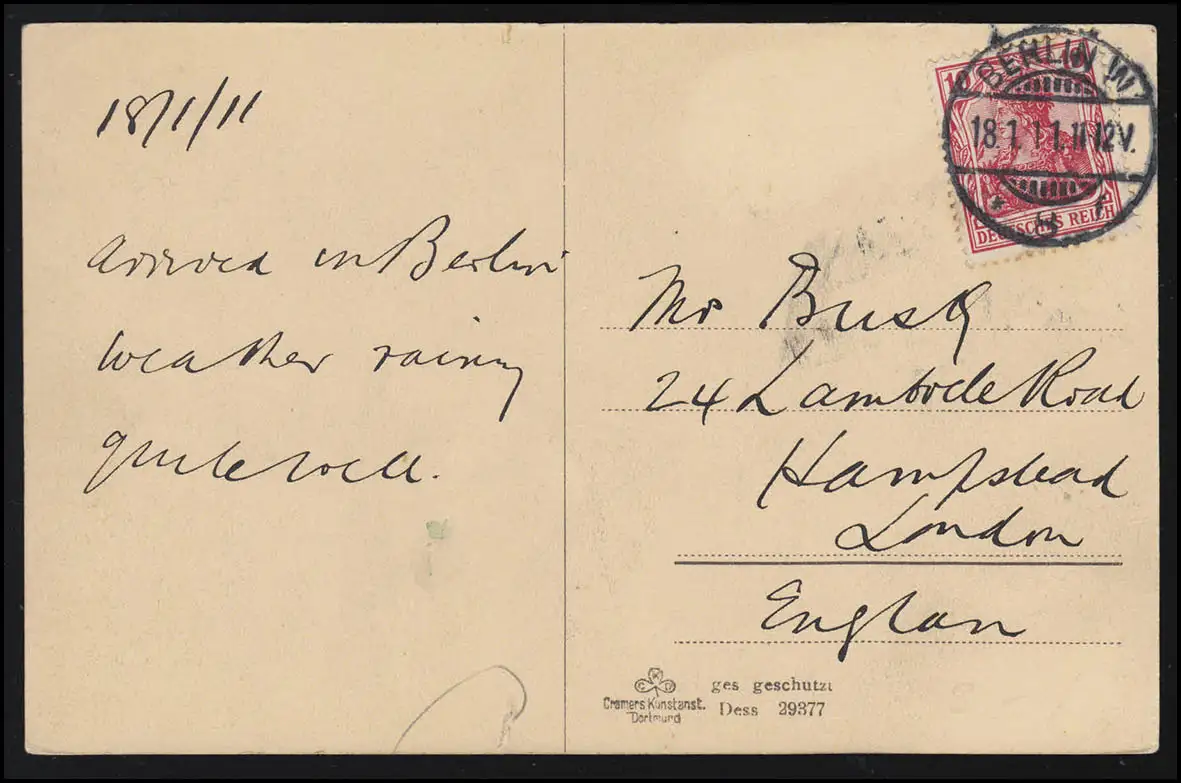 18/1/11
arrived in Berlin
weather rainy
quite well.
BERLIN W
18.1.11.11-12V.
10
DEUTSCHES REICH
Mr Busk
24 Road
Hampstead
London
Englan
Cramers Kunstanst.
Dortmund
ges geschutzt
Dess 29377